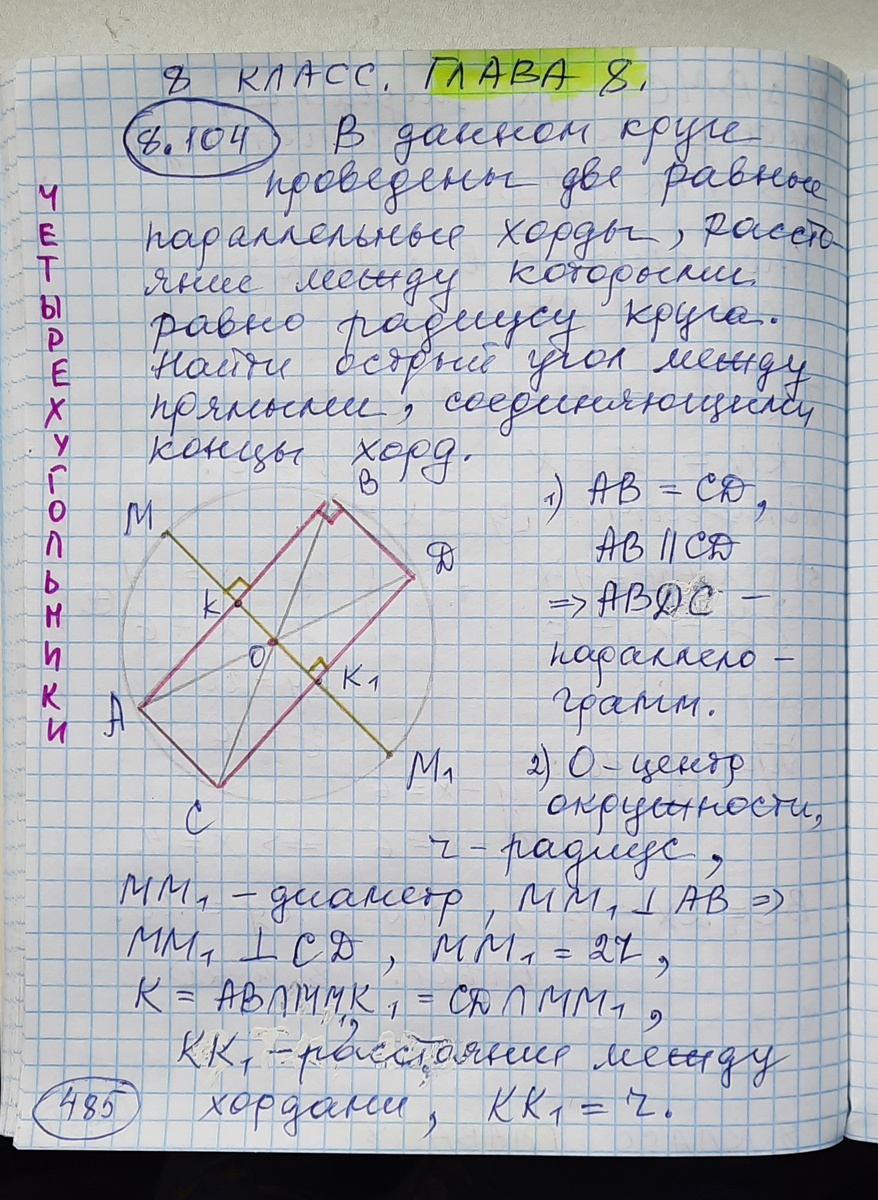 8 КЛАСС. ГЛАВА 8.
8.104 В данном круге
проведены две равные
параллельные хорды, рассто-
яние между которыми
равно радиусу круга.
Найти острый угол между
прямыми, соединяющими
концы хорд.
ЧЕТЫРЕХУГОЛЬНИКИ
M
B
D
K
O
K1
A
M1
C
1) AB = CD,
AB || CD
=> ABDC –
параллело-
грамм.
2) O – центр
окружности,
r – радиус,
MM1 – диаметр, MM1 ⊥ AB =>
MM1 ⊥ CD, MM1 = 2r,
K = AB∩MM1, K1 = CD∩MM1,
KK1 – расстояние между
хордами, KK1 = r.
485